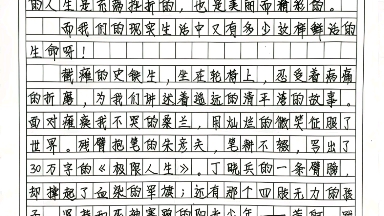 的人生是充满挫折的，也是美丽而精彩的。
而我们的现实生活中又有多少这样鲜活的
生命呀！
截瘫的史铁生，坐在轮椅上，忍受着病痛
的折磨，为我们讲述着遥远的清平湾的故事。
面对瘫痪我不哭的桑兰，用灿烂的微笑征服了
世界。残臂抱笔的朱彦夫，笔耕不辍，写出了
30万字的《极限人生》。丁晓兵的一条臂膀，
却撑起了血染的军旗；还有那个四肢无力的孩